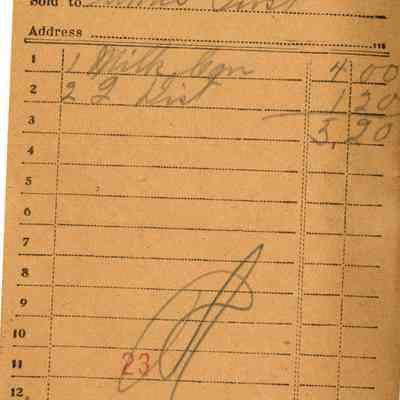 Sold to
Address
1 1 Milk Can 4 00
2 2 2 1 20
3 5.20
4
5
6
7
8
9
10
11 23
12